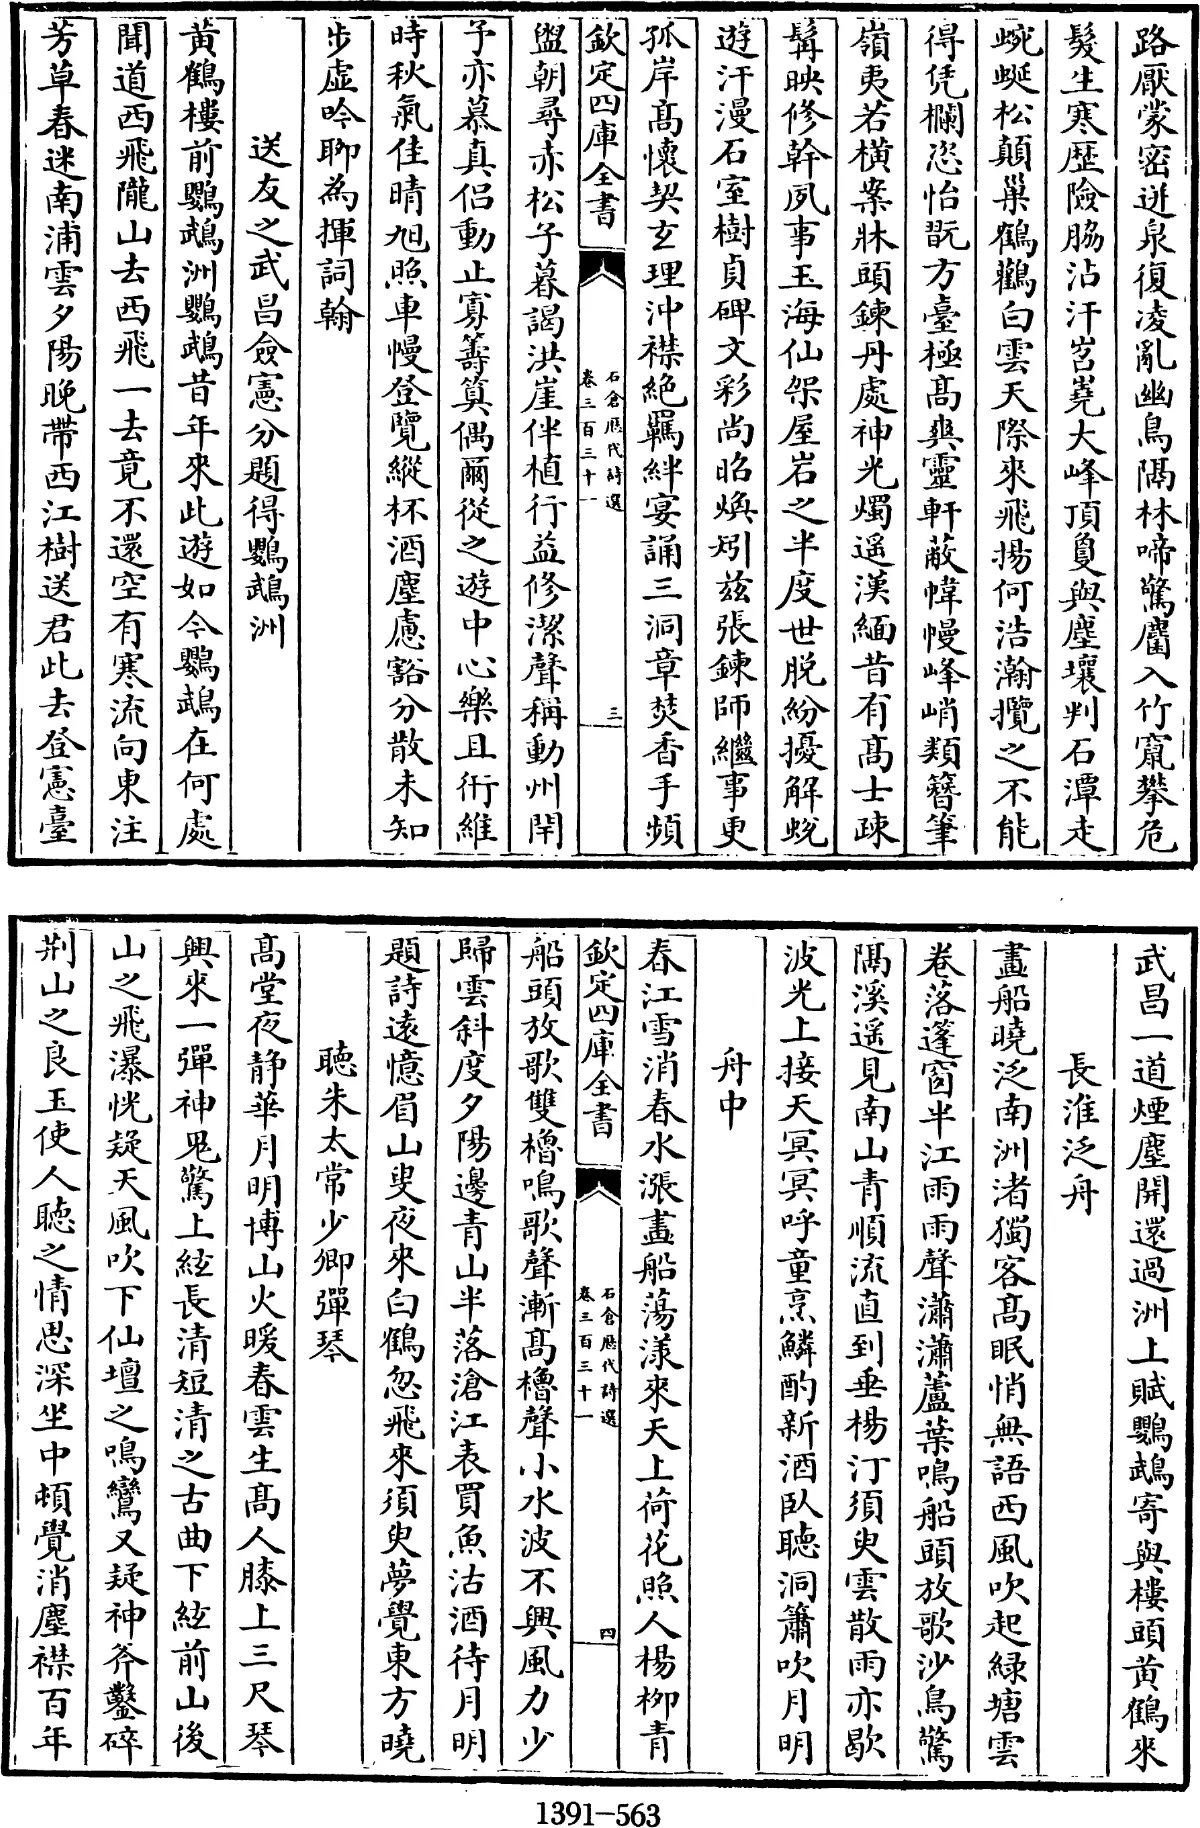 路厭蒙密迸泉復凌亂幽鳥隔林啼驚麕入竹竄攀危
髮生寒歴險脇沾汗岧嶤大峰頂敻與塵壤判石潭走
蜿蜒松顛巢鶴鸛白雲天際來飛揚何浩瀚攬之不能
得凭欄恣怡翫方臺極髙爽靈軒蔽幃幔峰峭類簪筆
嶺夷若橫案牀頭鍊丹處神光燭遥漢緬昔有髙士疎
髯映修幹夙事玉海仙架屋岩之半度世脱紛擾解蛻
遊汗漫石室樹貞碑文彩尚昭煥矧兹張鍊師繼事更
孤岸髙懷契玄理沖襟絶羈絆宴誦三洞章焚香手頻
欽定四庫全書
石倉歴代詩選
卷三百三十一
三
盥朝尋赤松子暮謁洪崖伴植行益修潔聲稱動州閈
予亦慕真侣動止寡籌筭偶爾從之遊中心樂且衎維
時秋氣佳晴旭照車幔登覽縱杯酒塵慮豁分散未知
步虚吟聊為揮詞翰
送友之武昌僉憲分題得鸚鵡洲
黄鶴樓前鸚鵡洲鸚鵡昔年來此遊如今鸚鵡在何處
聞道西飛隴山去西飛一去竟不還空有寒流向東注
芳草春迷南浦雲夕陽晚帶西江樹送君此去登憲臺
武昌一道煙塵開還過洲上賦鸚鵡寄與樓頭黄鶴來
長淮泛舟
畫船曉泛南洲渚獨客髙眠悄無語西風吹起緑塘雲
卷落蓬窗半江雨雨聲瀟瀟蘆葉鳴船頭放歌沙鳥驚
隔溪遥見南山青順流直到垂楊汀須臾雲散雨亦歇
波光上接天冥冥呼童烹鱗酌新酒臥聽洞簫吹月明
舟中
春江雪消春水漲畫船蕩漾來天上荷花照人楊柳青
欽定四庫全書
石倉歴代詩選
卷三百三十一
四
船頭放歌雙櫓鳴歌聲漸髙櫓聲小水波不興風力少
歸雲斜度夕陽邊青山半落滄江表買魚沽酒待月明
題詩遠憶眉山叟夜來白鶴忽飛來須臾夢覺東方曉
聽朱太常少卿彈琴
髙堂夜静華月明博山火暖春雲生髙人膝上三尺琴
興來一彈神鬼驚上絃長清短清之古曲下絃前山後
山之飛瀑恍疑天風吹下仙壇之鳴鸞又疑神斧鑿碎
荆山之良玉使人聽之情思深坐中頓覺消塵襟百年
1391-563